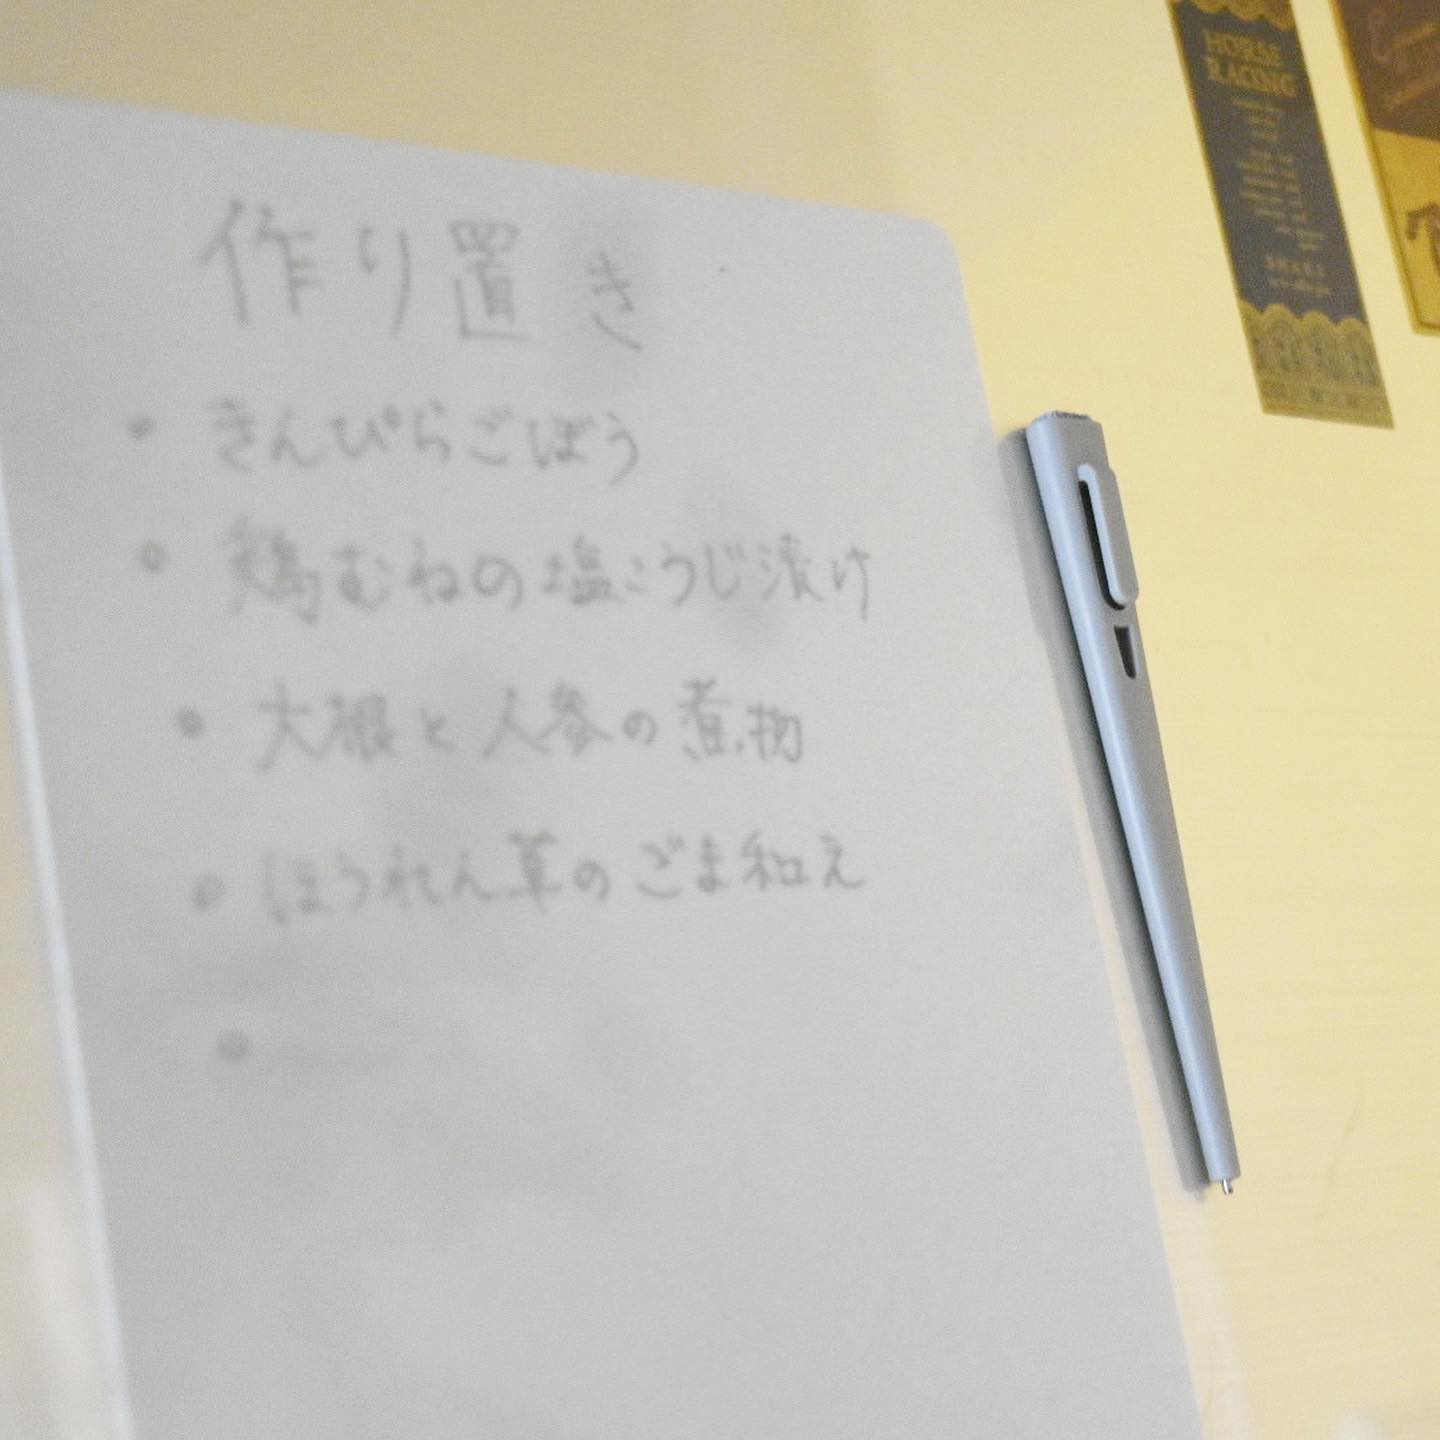 作り置き
• きんぴらごぼう
• 鶏むねの塩こうじ漬け
• 大根と人参の煮物
• ほうれん草のごま和え
•
HORSE
RACING